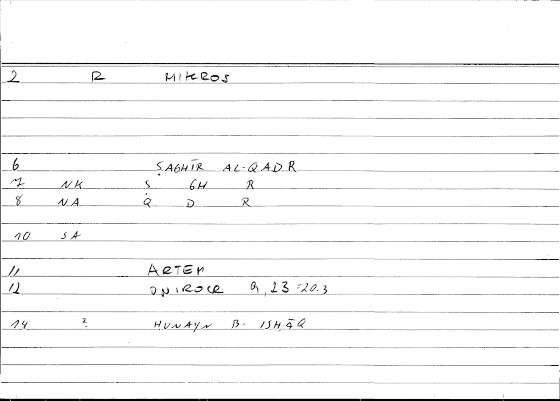 2 R MIKROS
6 ṢAGHĪR AL-QADR
7 NK Ṣ GH R
8 NA Q D R
10 SA
11 ARTEM
12 ONIROCR 9,23=20.3
14 ? HUNAYN B. ISḤĀQ